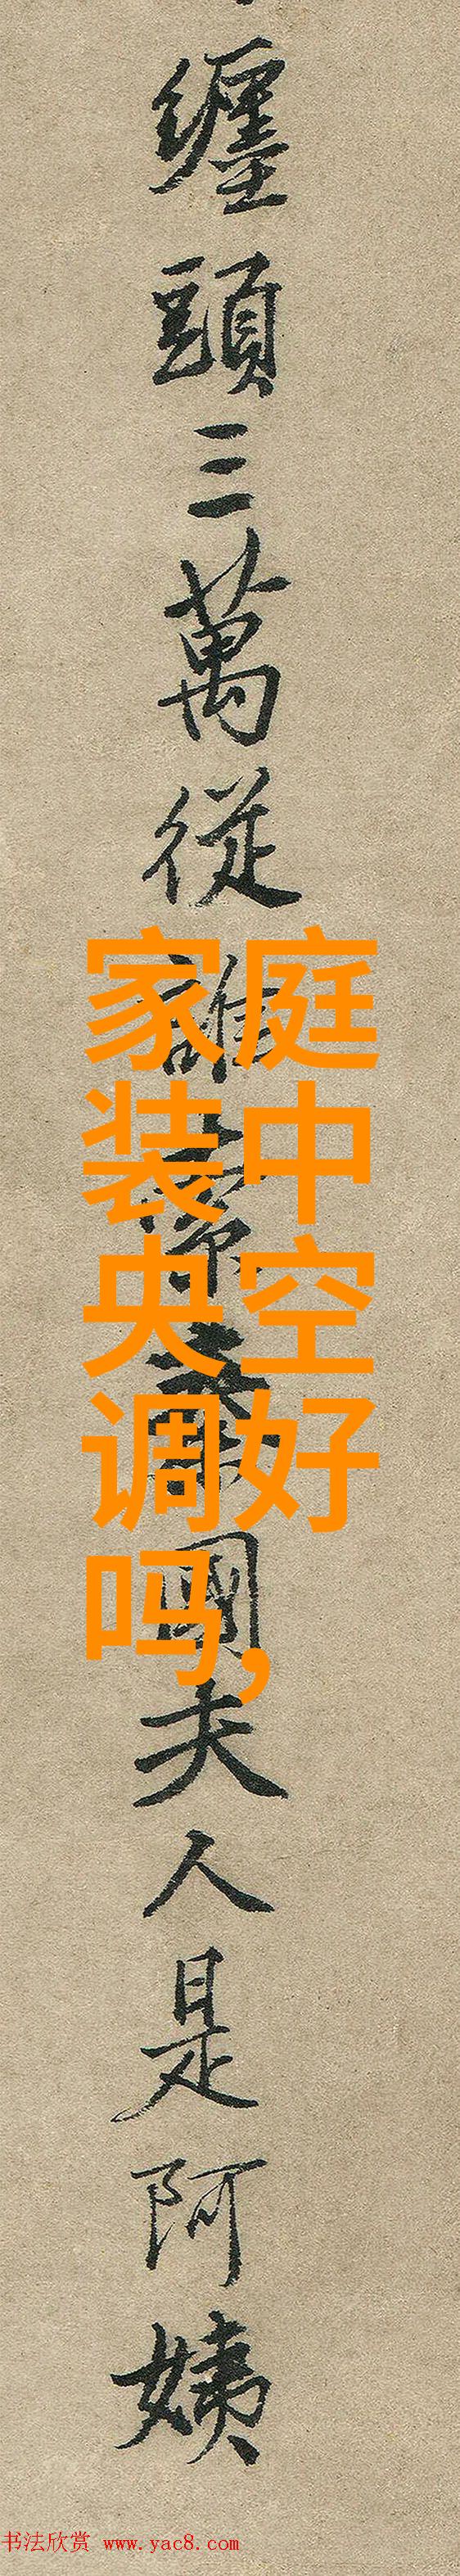 纏頭三萬從誰
國夫人是阿姨
家庭
装中
央空
调好
吗,
书法欣赏 www.yac8.com